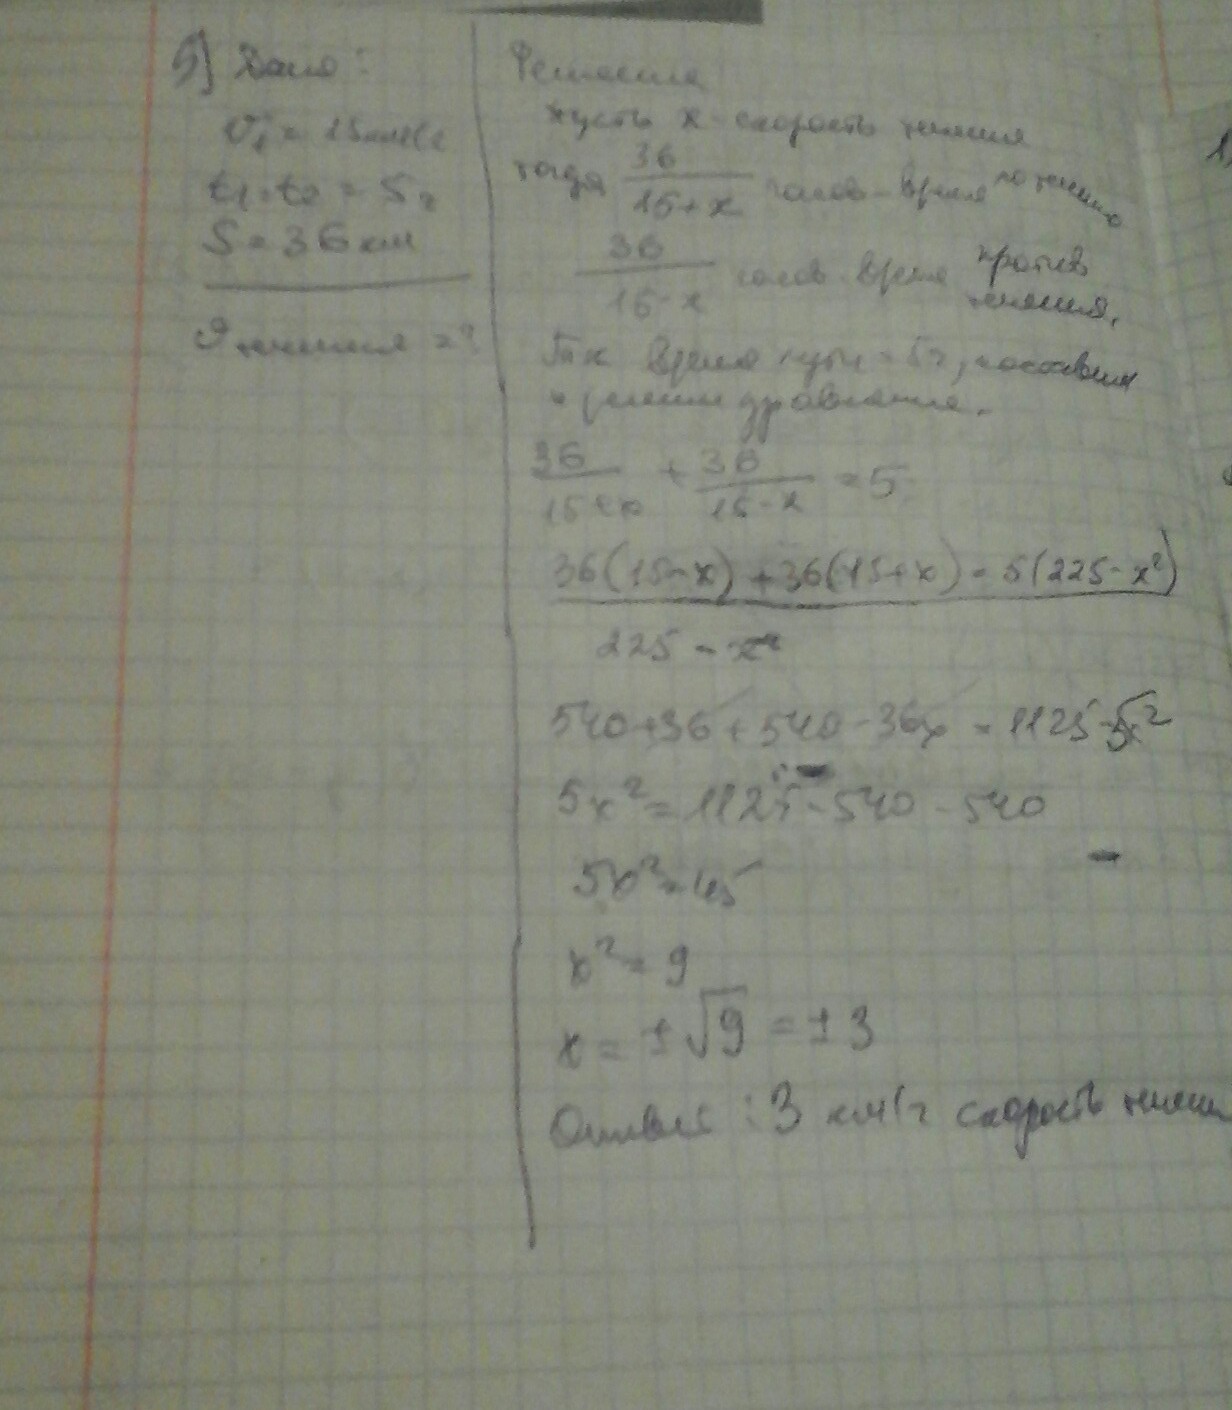 5] Дано:
v₁ = 15 км/ч
t₁+t₂ = 5 ч
S = 36 км
течения = ?
Решение
Пусть x - скорость течения
тогда 36/15+x часов - время по течению
36/15-x часов - время против течения.
Т.к время пути = 5ч, составим
и решим уравнение.
36/15+x + 36/15-x = 5
36(15-x) + 36(15+x) = 5(225-x²)
225 - x²
540+36+540-36x = 1125-5x²
5x² = 1125-540-540
5x² = 45
x² = 9
x = ±√9 = ±3
Ответ: 3 км/ч скорость течения